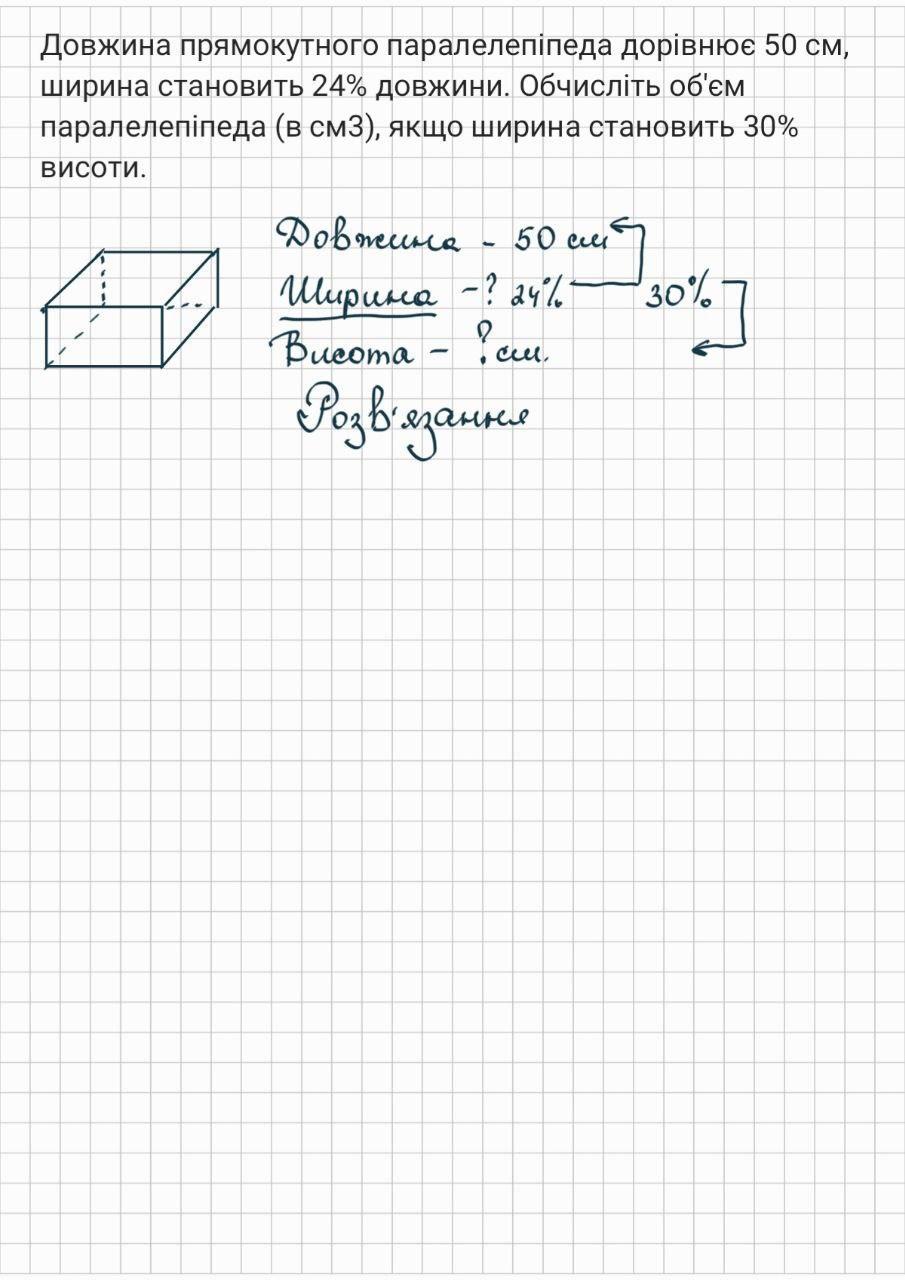 Довжина прямокутного паралелепіпеда дорівнює 50 см,
ширина становить 24% довжини. Обчисліть об'єм
паралелепіпеда (в см3), якщо ширина становить 30%
висоти.
Довжина - 50 см
Ширина -? 24% 30%
Висота - ? см.
Розв'язання